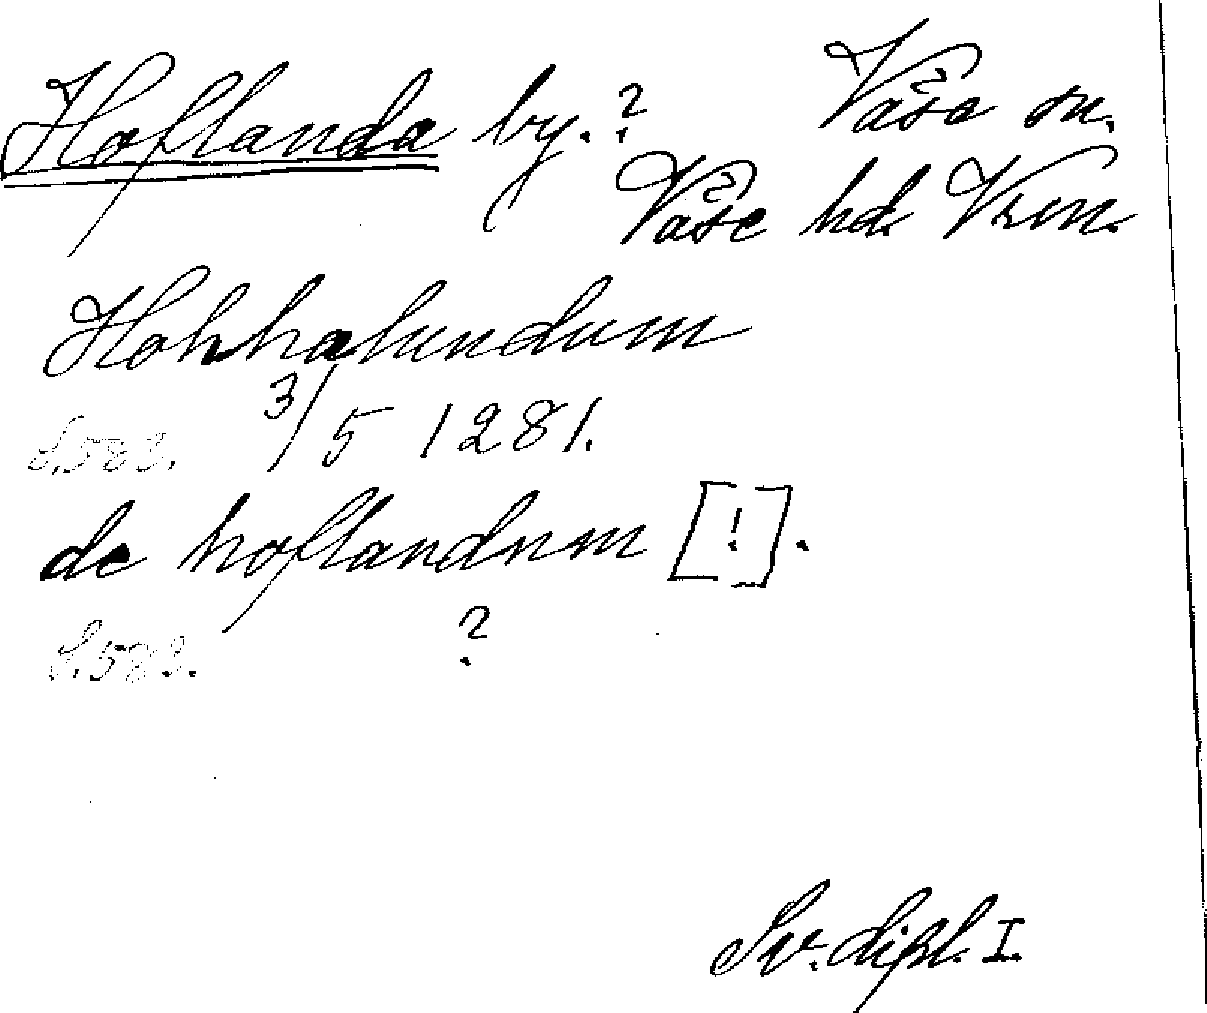 Hoflanda by.? Väse sn.
Väse hd. Vrm.
Hohhalundum
3/5 1281.
S. 583.
de hoflandum [!].
S. 583. ?
Sv. dipl. I.